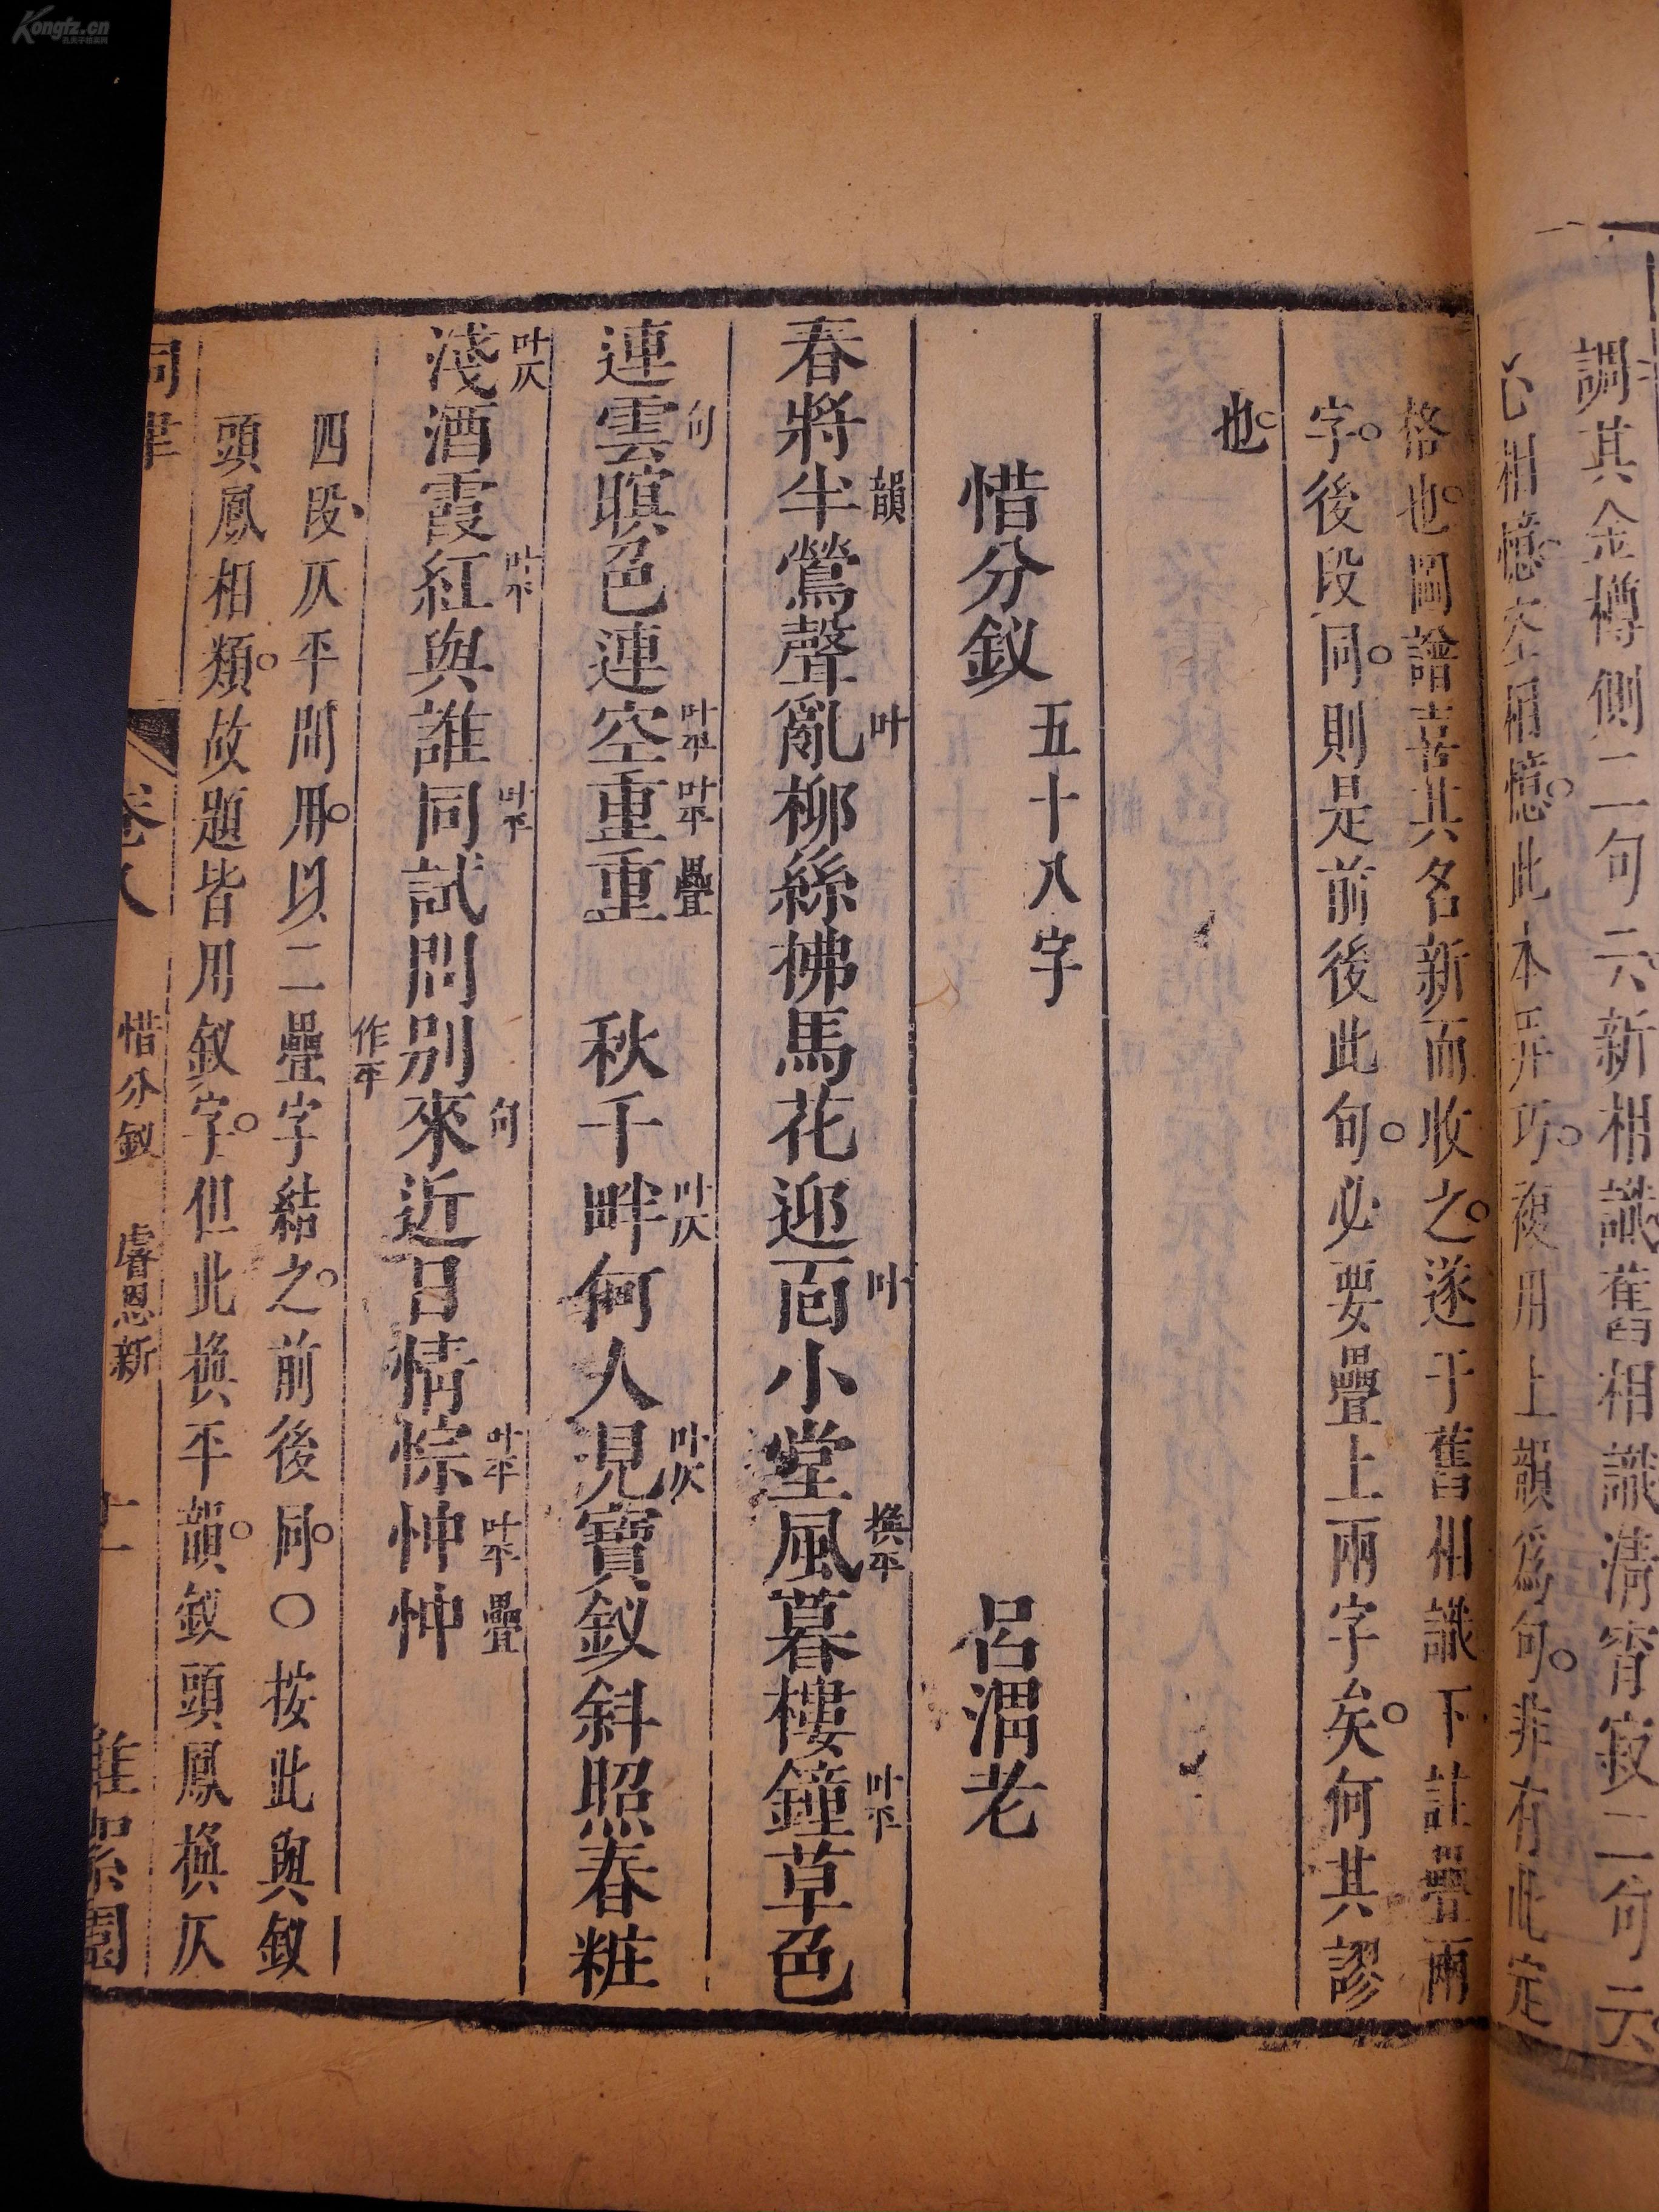 調其金樽側二句云新相識舊相識清宵寂二句云
心相憶空相憶此本弄巧複用上韻為句非有此定
格也圖譜喜其名新而收之遂于舊相識下註疊兩
字後段同則是前後此句必要疊上兩字矣何其謬
也
惜分釵 五十八字 呂渭老
春將半韻鶯聲亂叶柳絲拂馬花迎面叶小堂風換平暮樓鐘叶平草色
連雲句暝色連空叶平重叶平重疊 秋千畔叶仄何人見叶仄寶釵斜照春粧
淺叶仄酒霞紅叶平與誰同叶平試問別作平來句近日情悰叶平忡叶平忡疊
四段仄平間用以二疊字結之前後同〇按此與釵
頭鳳相類故題皆用釵字但此換平韻釵頭鳳換仄
詞律 卷八 惜分釵 睿恩新 十一 堆絮園
Kongfz.cn